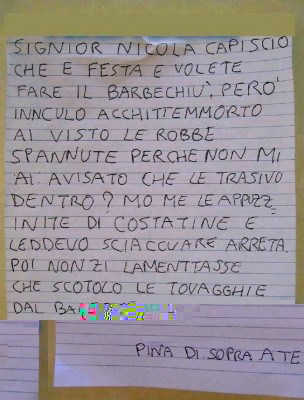 SIGNIOR NICOLA CAPISCIO
CHE E FESTA E VOLETE
FARE IL BARBECHIU', PERO'
INNCULO ACCHITTEMMORTO
AI VISTO LE ROBBE
SPANNUTE PERCHE NON MI
AI AVISATO CHE LE TRASIVO
DENTRO? MO ME LE APPUZZ
INITE DI COSTATINE E
LEDDEVO SCIACCUARE ARRETA.
POI NON ZI LAMENTTASSE
CHE SCOTOLO LE TOVAGGHIE
DAL
PINA DI SOPRA A TE